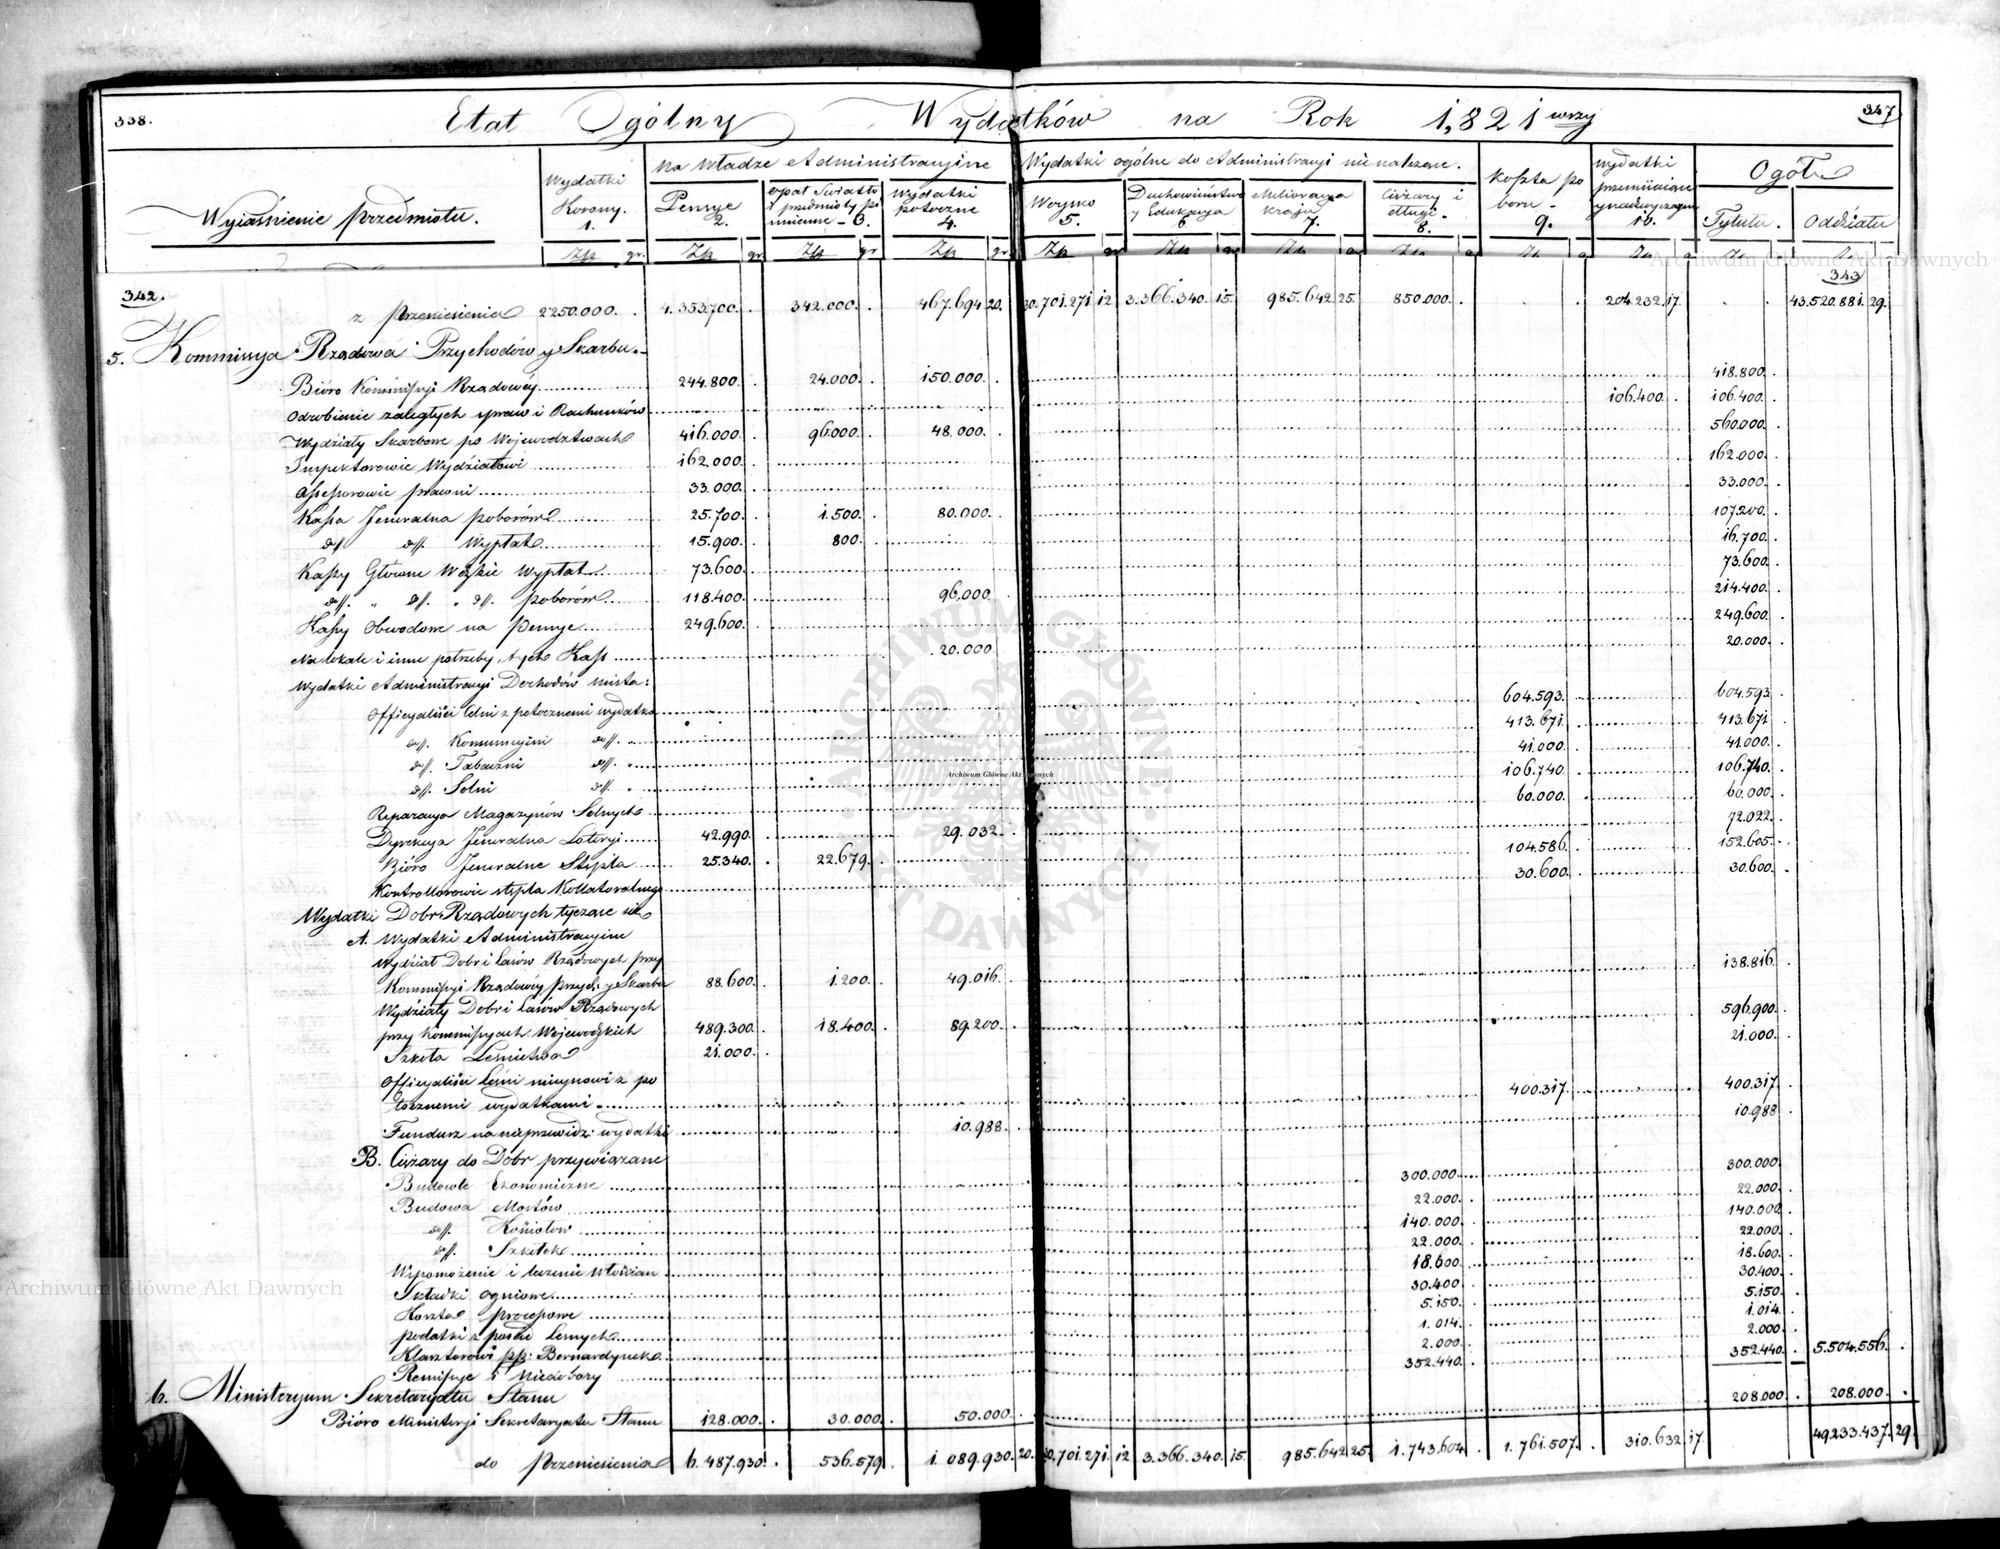 338. Etat Ogólny Wydatków na Rok 1,821 wszy 347
Wyjaśnienie przedmiotu. Wydatki Korony. 1. Na Władze Administracyjne Wydatki ogólne do Administracyi nienależące. Koszta po boru - 9. Wydatki 10. Ogół
Pensye 2. Opał Światło i przedmioty piśmienne - 3. Wydatki potoczne 4. Woysko 5. Duchowieństwo y Edukacya 6 Melioracya kraju 7. Ciężary i długi - 8. Tytułu. Oddziału
Złp gr. Złp gr Złp gr Złp gr Złp gr Złp gr Zł. g Zł. g Zł. g Zł. g Zł. Zł.
342. 343
z Przeniesienia 2250.000. . 4.353.700. . 342.000. . 467.694 20. 30.701.271 12 3.366.340. 15. 985.642 25. 850.000. . . . 204.232 17. . . 43.520.881. 29.
5. Kommissya Rządowa Przychodów y Skarbu.
Bióro Kommissyi Rządowéy 244.800. . 24.000. . 150.000. . 418.800. .
Odrobienie zaległych spraw i Rachunków 106.400. . 106.400. .
Wydziały Skarbowe po Województwach 416.000. . 96.000. . 48.000. . 560.000. .
Inspektorowie Wydziałowi 162.000. . 162.000. .
Assessorowie prawni 33.000. . 33.000. .
Kassa Jeneralna poborów 25.700. . 1.500. . 80.000. . 107.200. .
dtt dtt. Wypłat 15.900. . 800. . 16.700. .
Kassy Główne Wdzkie Wypłat 73.600. . 73.600. .
dtt. " dtt. " dtt. poborów 118.400. . 96.000. 214.400. .
Kassy Obwodowe na Pensye 249.600. . 249.600. .
Na lokale i inne potrzeby tych Kass 20.000 20.000. .
Wydatki Administracyi Dochodów niesta:
Officyaliści Celni z potocznemi wydatka 604.593. . 604.593. .
dtt. Konsumcyjni dtt. " 413.671. . 413.671. .
dtt. Tabaczni dtt. " 41.000. . 41.000. .
dtt. Solni dtt. " 106.740. . 106.740. .
Reparacya Magazynów Solnych 60.000. . 60.000. .
Dyrekcya Jeneralna Loteryi 42.990. . 29.032. . 72.022. .
Bióro Jeneralne Stępla 25.340. . 22.679. . 104.586. . 152.605. .
Kontrollorowie stępla Kollateralnego 30.600. . 30.600. .
Wydatki Dobr Rządowych tyczące się
A. Wydatki Administracyine
Wydział Dobr i Lasów Rządowych przy
Kommissyi Rządowéy Przych: y Skarbu 88.600. . 1.200. . 49.016. . 138.816. .
Wydziały Dobr i Lasów Rządowych
przy Kommissyach Wojewódzkich 489.300. . 18.400. . 89.200. . 596.900. .
Szkoła Leśnictwa 21.000. . 21.000. .
Officyaliści leśni z po
tocznemi wydatkami 400.317. . 400.317. .
Fundusz na nieprzewidz: wydatki 10.988. 10.988 .
B. Ciężary do Dobr przywiązane
Budowle Ekonomiczne 300.000. . 300.000. .
Budowa Mostów 22.000. . 22.000. .
dtt. Kościołów 140.000. . 140.000. .
dtt. Szkółek 22.000. . 22.000. .
Wspomożenie i leczenie Włościan 18.600. . 18.600. .
Składki ogniowe 30.400. . 30.400. .
Koszta processowe 5.150. . 5.150. .
podatki z posad Leśnych 1.014. . 1.014. .
Klasztorowi pp: Bernardynek 2.000. . 2.000. .
Remissye i Niedobory 352.440. . 352.440. . 5.504.556. .
6. Ministeryum Sekretaryatu Stanu
Bióro Ministeryi Sekretaryatu Stanu 128.000. . 30.000. . 50.000. . 208.000. . 208.000. .
do Przeniesienia 6.487.930. . 536.579. . 1.089.930. 20. 30.701.271. 12 3.366.340. 15. 985.642 25. 1.743.604. . 1.761.507. . 310.632. 17. 49.233.437. 29.
Archiwum Główne Akt Dawnych
ARCHIWUM GŁÓWNE AKT DAWNYCH
Archiwum Główne Akt Dawnych
Archiwum Główne Akt Dawnych